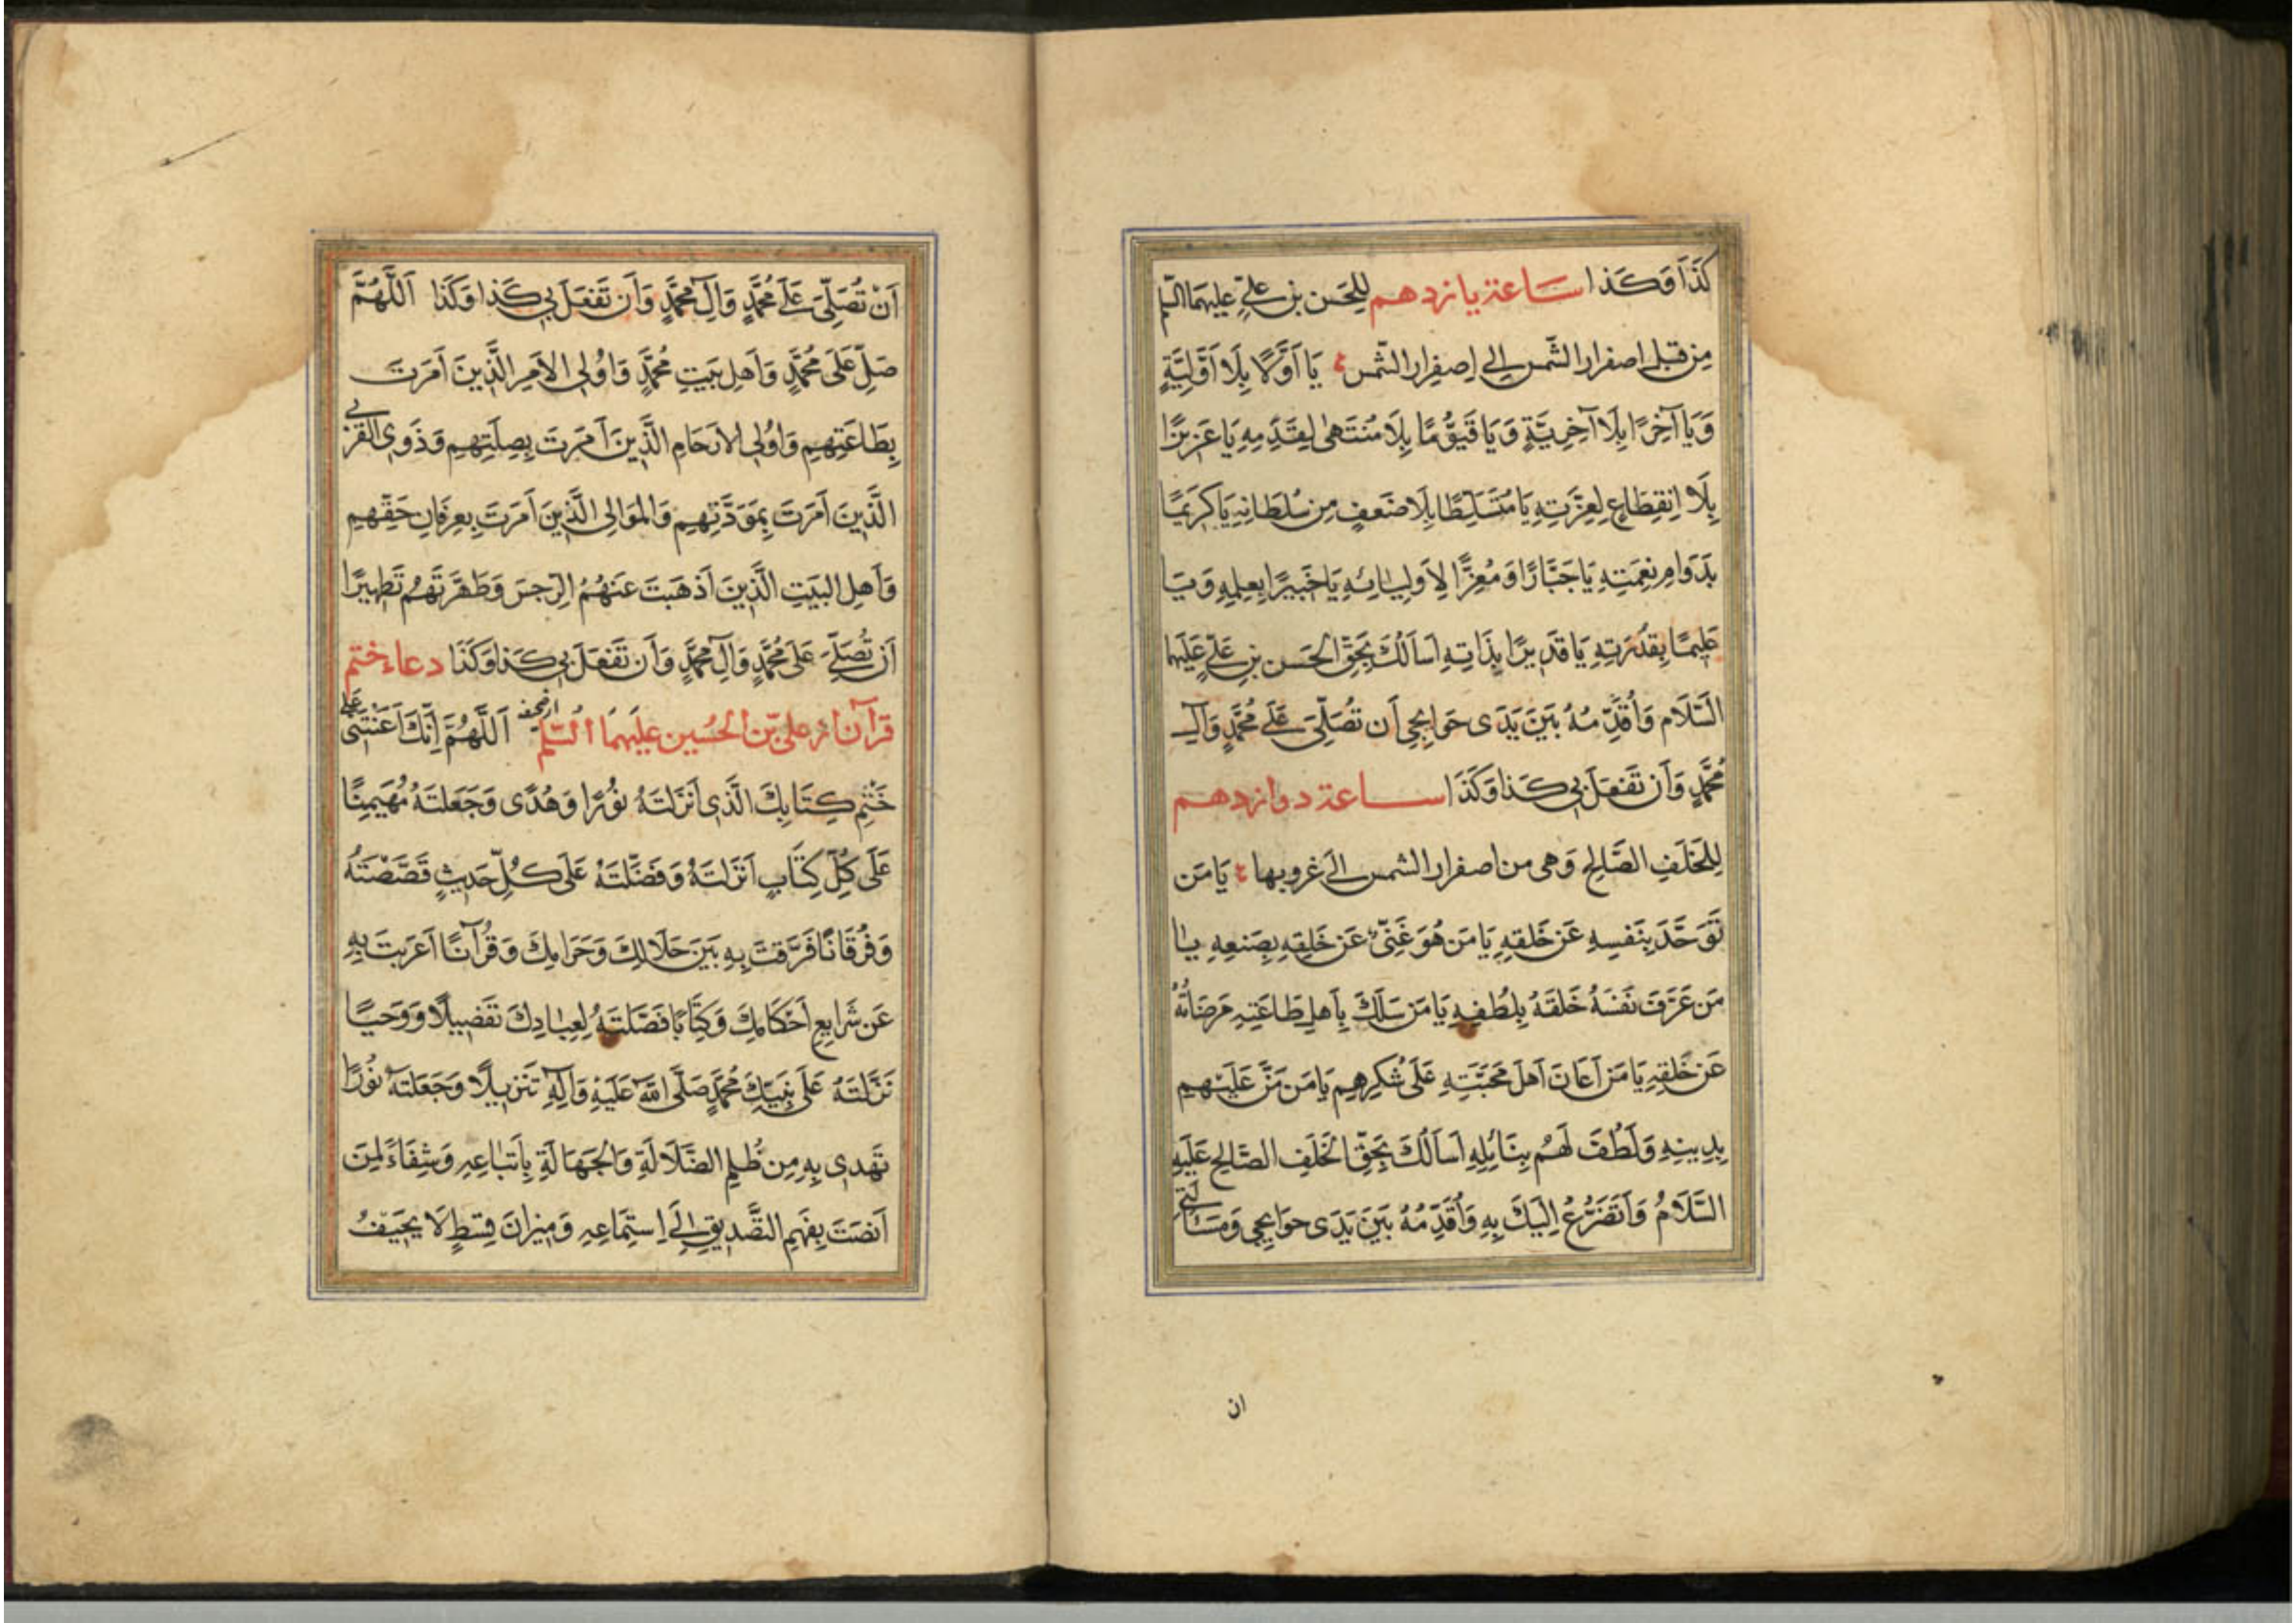 كَذَا وَكَذا ساعة يازدهم لِلحَسَن بنِ عَلِيّ عليهما السلم
مِن قبل اصفرار الشّمس الى اِصفِرار الشّمس يَا اَوَّلًا بِلَا اَوَّلِيَّةٍ
وَيَا آخِرًا بِلَا آخِرِيَّةٍ وَيَا قَيُّومًا بِلَا مُنتَهىٰ لِقِدَمِهِ يَا عَزِيزًا
بِلَا اِنقِطَاعٍ لِعِزَّتِهِ يَا مُتَسَلِّطًا بِلَا ضَعفٍ مِن سُلطَانِهِ يَا كَرِيمًا
بِدَوَامِ نِعمَتِهِ يَا جَبَّارًا وَمُعِزًّا لِاَولِيَائِهِ يَا خَبِيرًا بِعِلمِهِ وَيَا
عَلِيمًا بِقُدرَتِهِ يَا قَدِيرًا بِذَاتِهِ اَسأَلُكَ بِحَقِّ الحَسَنِ بنِ عَلِيّ عَلَيهِما
السَّلَام وَاُقَدِّمُهُ بَينَ يَدَى حَوَايِجِى اَن تُصَلِّىَ عَلى مُحَمَّدٍ وَآلِ
مُحَمَّدٍ وَاَن تَفعَلَ بِى كَذا وَكَذَا ساعة دوازدهم
لِلخَلَفِ الصَّالِح وَهى من اصفرار الشمس الى غروبها يَا مَن
تَوَحَّدَ بِنَفسِهِ عَن خَلقِهِ يَا مَن هُوَ غَنِىٌّ عَن خَلقِهِ بِصَنعِهِ يَا
مَن عَرَّفَ نَفسَهُ خَلقَهُ بِلُطفِهِ يَا مَن سَلَكَ بِاَهلِ طَاعَتِهِ مَرضَاتَهُ
عَن خَلقِهِ يَا مَن اَعَانَ اَهلَ مَحَبَّتِهِ عَلَى شُكرِهِم يَا مَن مَنَّ عَلَيهِم
بِدِينِهِ وَلَطُفَ لَهُم بِنَائِلِهِ اَسأَلُكَ بِحَقِّ الخَلَفِ الصَّالِح عَلَيهِ
السَّلَامُ وَاَتَضَرَّعُ اِلَيكَ بِهِ وَاُقَدِّمُهُ بَينَ يَدَى حوَايِجِى وَمَسئَلَتِى
ان
اَنْ تُصَلِّىَ عَلَى مُحَمَّدٍ وَآلِ مُحَمَّدٍ وَاَن تَفعَلَ بِى كَذا وَكَذَا اَللَّهُمَّ
صَلِّ عَلَى مُحَمَّدٍ وَاَهلِ بَيتِ مُحَمَّدٍ وَاُولِى الاَمرِ الَّذِينَ اَمَرتَ
بِطَاعَتِهِم وَاُولِى الاَرحَامِ الَّذِينَ اَمَرتَ بِصِلَتِهِم وَذَوِى القُربى
الَّذِينَ اَمَرتَ بِمَوَدَّتِهِم وَالمَوَالِى الَّذِينَ اَمَرتَ بِعِرفَانِ حَقِّهِم
وَاَهلِ البَيتِ الَّذِينَ اَذهَبتَ عَنهُمُ الرِّجسَ وَطَهَّرتَهُم تَطهِيرًا
اَن تُصَلِّىَ عَلَى مُحَمَّدٍ وَآلِ مُحَمَّدٍ وَاَن تَفعَلَ بِى كَذا وَكَذَا دعاء ختم
قرآن از على بن الحُسين عليهما السّلم از صحيفه اَللَّهُمَّ اِنَّكَ اَعَنْتَنِى عَلى
خَتْمِ كِتَابِكَ الَّذِى اَنزَلتَهُ نُورًا وَهُدًى وَجَعَلتَهُ مُهَيمِنًا
عَلَى كُلِّ كِتَابٍ اَنزَلتَهُ وَفَضَّلتَهُ عَلَى كُلِّ حَدِيثٍ قَصَصْتَهُ
وَفُرقَانًا فَرَّقتَ بِهِ بَينَ حَلَالِكَ وَحَرَامِكَ وَقُرآنًا اَعرَبتَ بِهِ
عَن شَرَايِعِ اَحكَامِكَ وَكِتَابًا فَصَّلتَهُ لِعِبَادِكَ تَفصِيلًا وَوَحيًا
نَزَّلتَهُ عَلَى نَبِيِّكَ مُحَمَّدٍ صَلَّى اللّٰه عَلَيهِ وَآلِهِ تَنزِيلًا وَجَعَلتَهُ نُورًا
تَهدِى بِهِ مِن ظُلَمِ الضَّلَالَةِ وَالجَهَالَةِ بِاتّبَاعِهِ وَشِفَاءً لِمَن
اَنصَتَ بِفَهمِ التَّصدِيقِ اِلَى اِستِمَاعِهِ وَمِيزَانَ قِسطٍ لَا يَحِيفُ